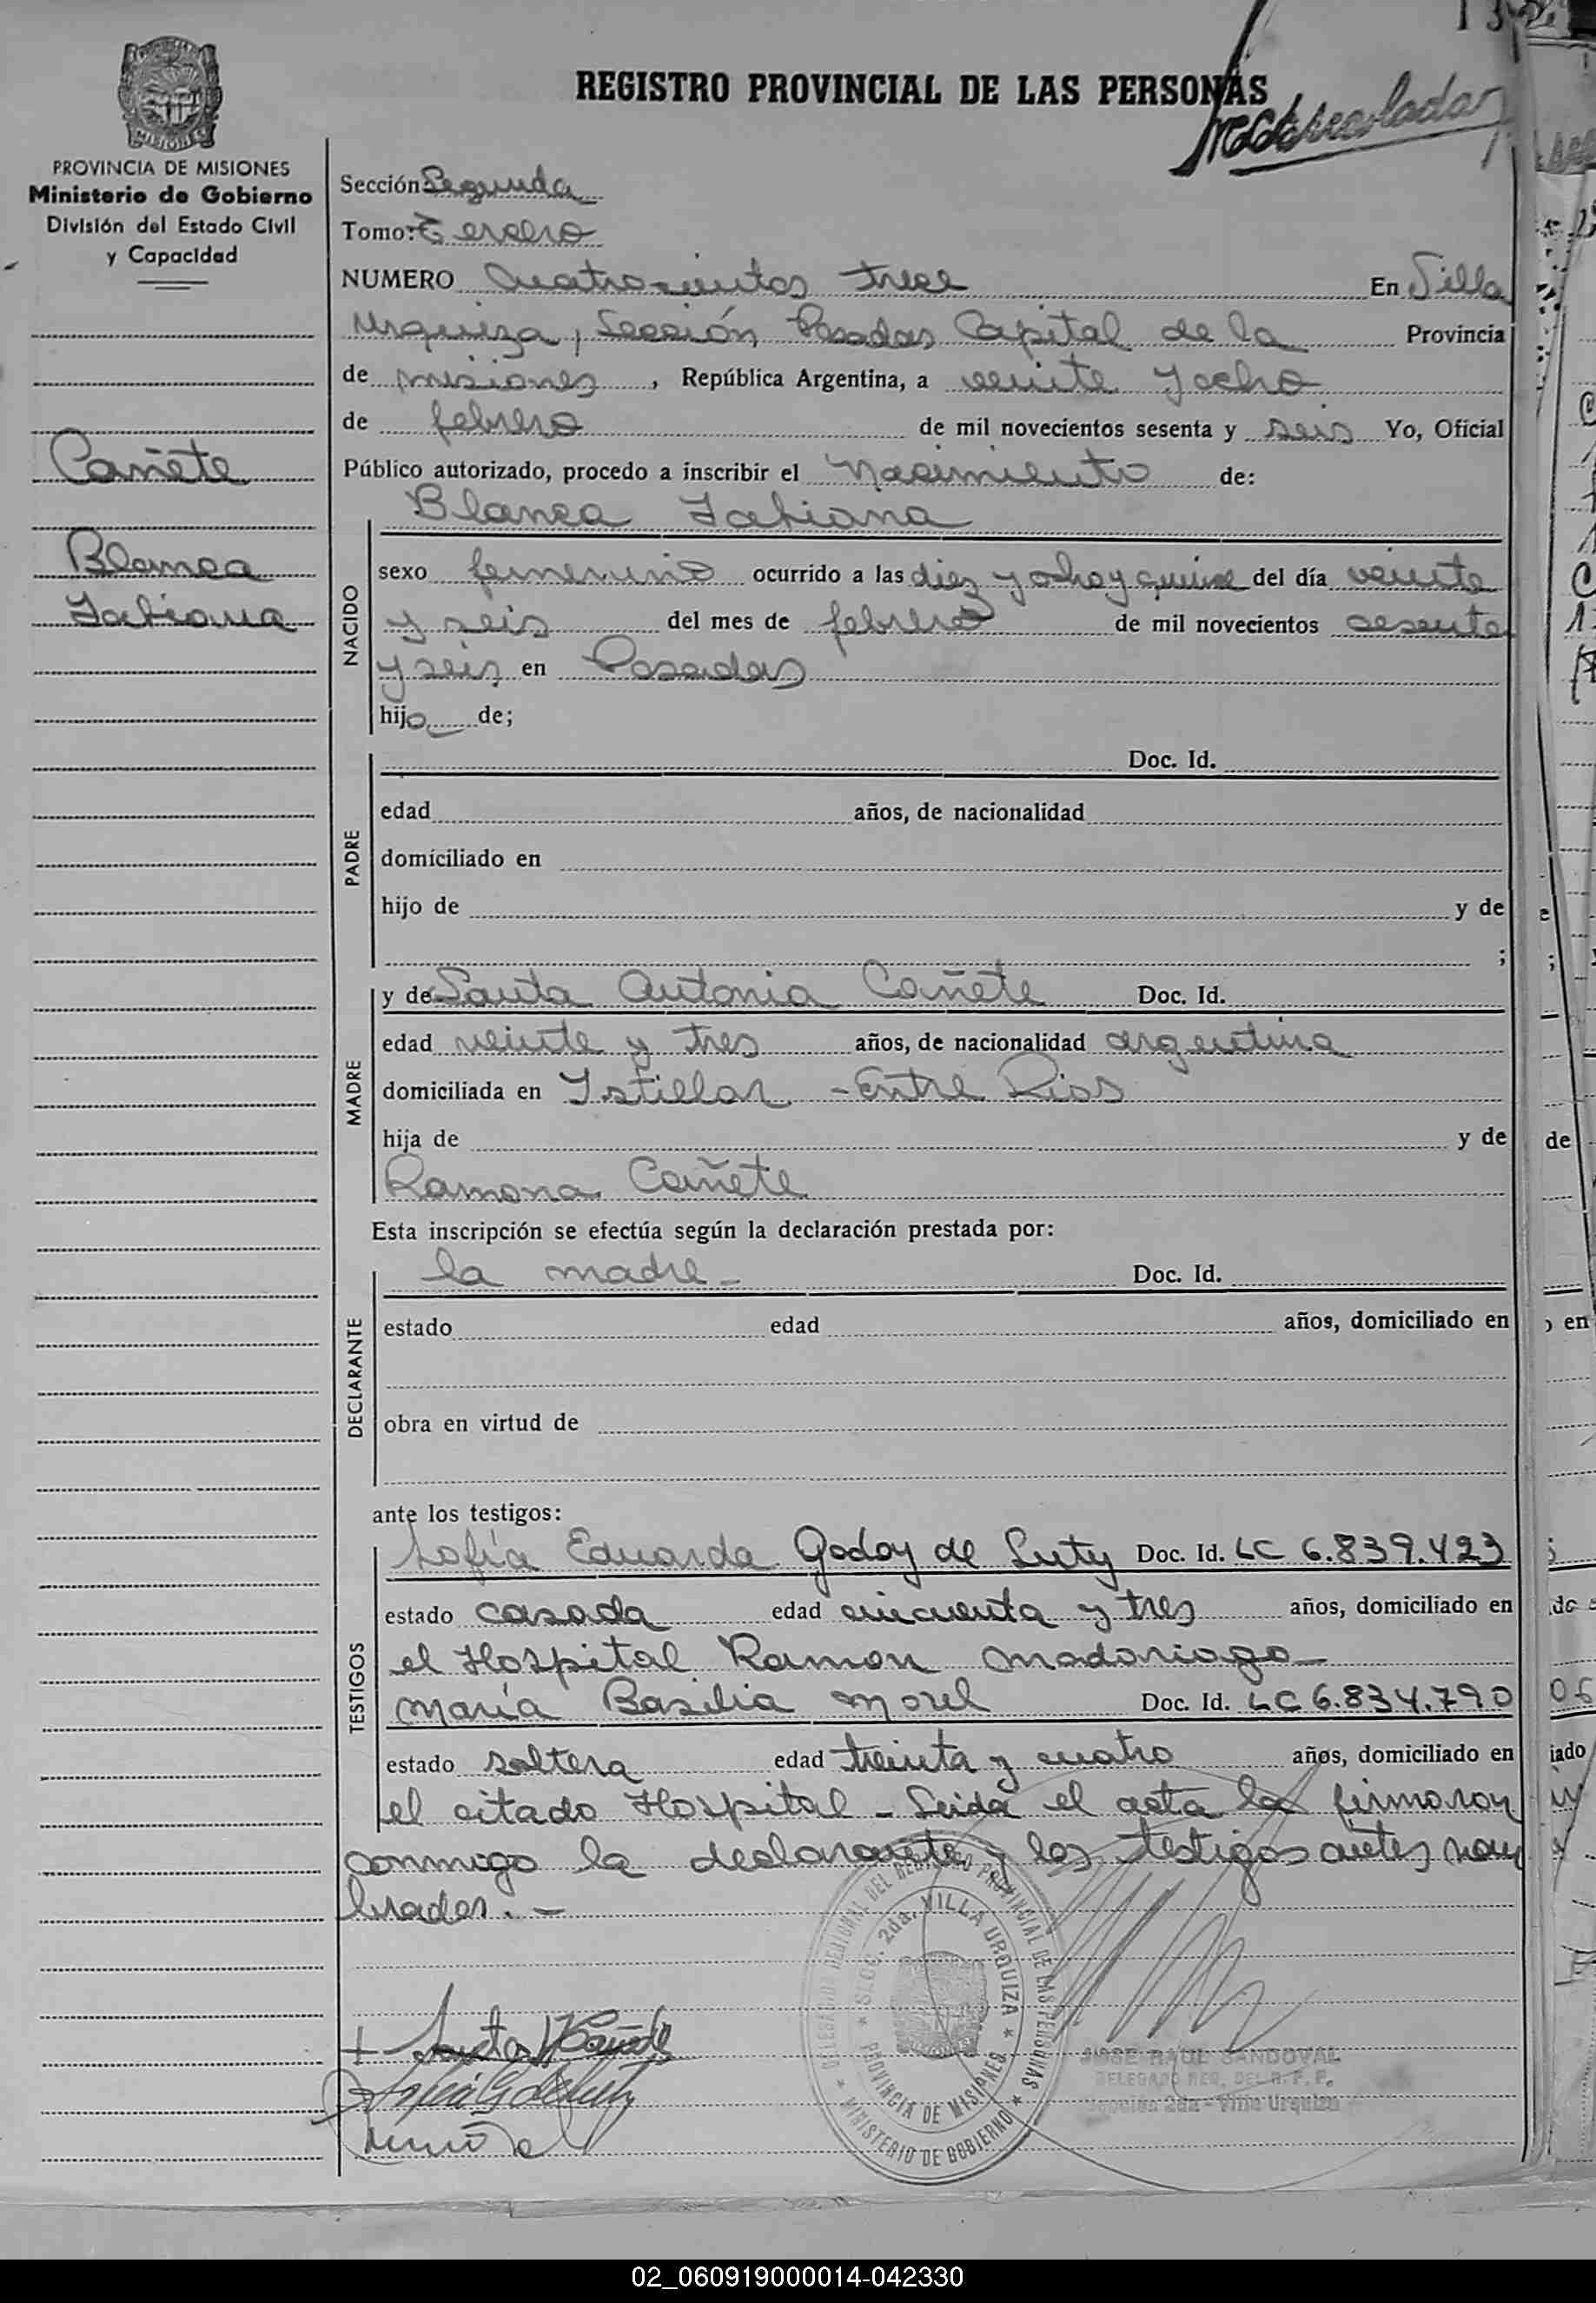 REGISTRO PROVINCIAL DE LAS PERSONAS
MISIONES
PROVINCIA DE MISIONES
Ministerio de Gobierno
División del Estado Civil
y Capacidad
Cañete
Blanca
Fabiana
Sección Segunda
Tomo: Tercero
NUMERO Cuatrocientos trece En Villa
Urquiza, Sección Posadas Capital de la Provincia
de misiones, República Argentina, a veinte y ocho
de febrero de mil novecientos sesenta y seis Yo, Oficial
Público autorizado, procedo a inscribir el Nacimiento de:
Blanca Fabiana
NACIDO
sexo femenino ocurrido a las diez y ocho y quince del día veinte
y seis del mes de febrero de mil novecientos sesenta
y seis en Posadas
hija de;
PADRE
Doc. Id.
edad años, de nacionalidad
domiciliado en
hijo de y de
;
MADRE
y de Santa Antonia Cañete Doc. Id.
edad veinte y tres años, de nacionalidad argentina
domiciliada en Istillar - Entre Rios
hija de y de
Ramona Cañete
Esta inscripción se efectúa según la declaración prestada por:
DECLARANTE
la madre - Doc. Id.
estado edad años, domiciliado en
obra en virtud de
ante los testigos:
TESTIGOS
Sofía Eduarda Godoy de Luty Doc. Id. LC 6.839.423
estado casada edad cincuenta y tres años, domiciliado en
el Hospital Ramon Madariaga -
María Basilia Morel Doc. Id. LC 6.834.790
estado soltera edad treinta y cuatro años, domiciliado en
el citado Hospital - Leida el acta la firmaron
conmigo la declarante y los testigos antes nom
brados. -
DELEGADO REGIONAL DEL REGISTRO PROVINCIAL DE LAS PERSONAS
MINISTERIO DE GOBIERNO
SECC. 2da. VILLA URQUIZA
PROVINCIA DE MISIONES
JOSE RAUL SANDOVAL
DELEGADO REG. DEL R. P. P.
Sección 2da - Villa Urquiza
02_060919000014-042330